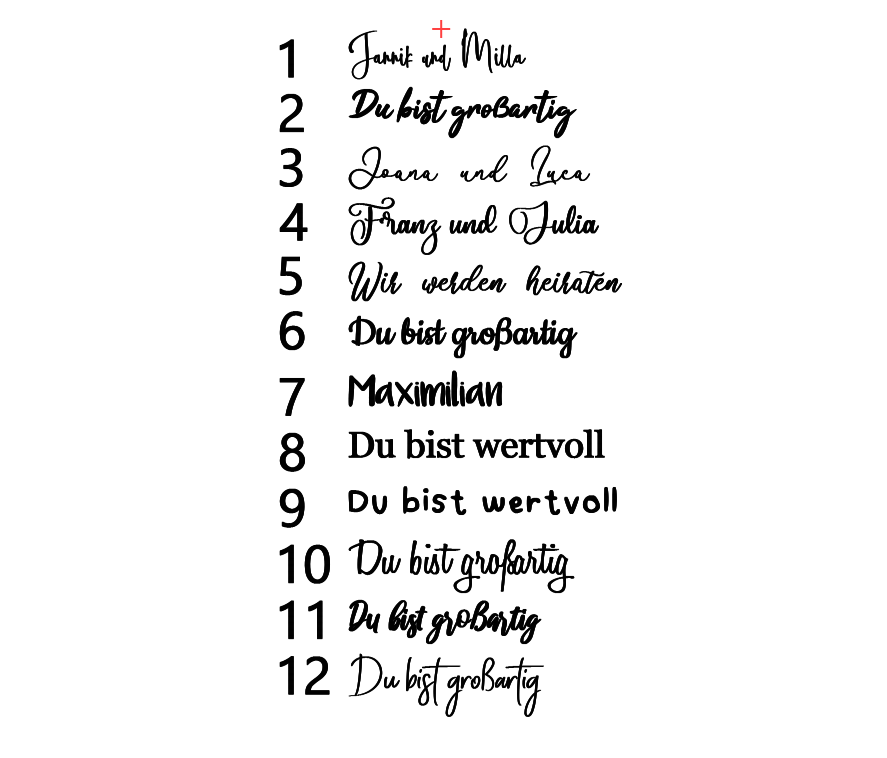 1 Jannik und Milla
2 Du bist großartig
3 Joana und Luca
4 Franz und Julia
5 Wir werden heiraten
6 Du bist großartig
7 Maximilian
8 Du bist wertvoll
9 Du bist wertvoll
10 Du bist großartig
11 Du bist großartig
12 Du bist großartig